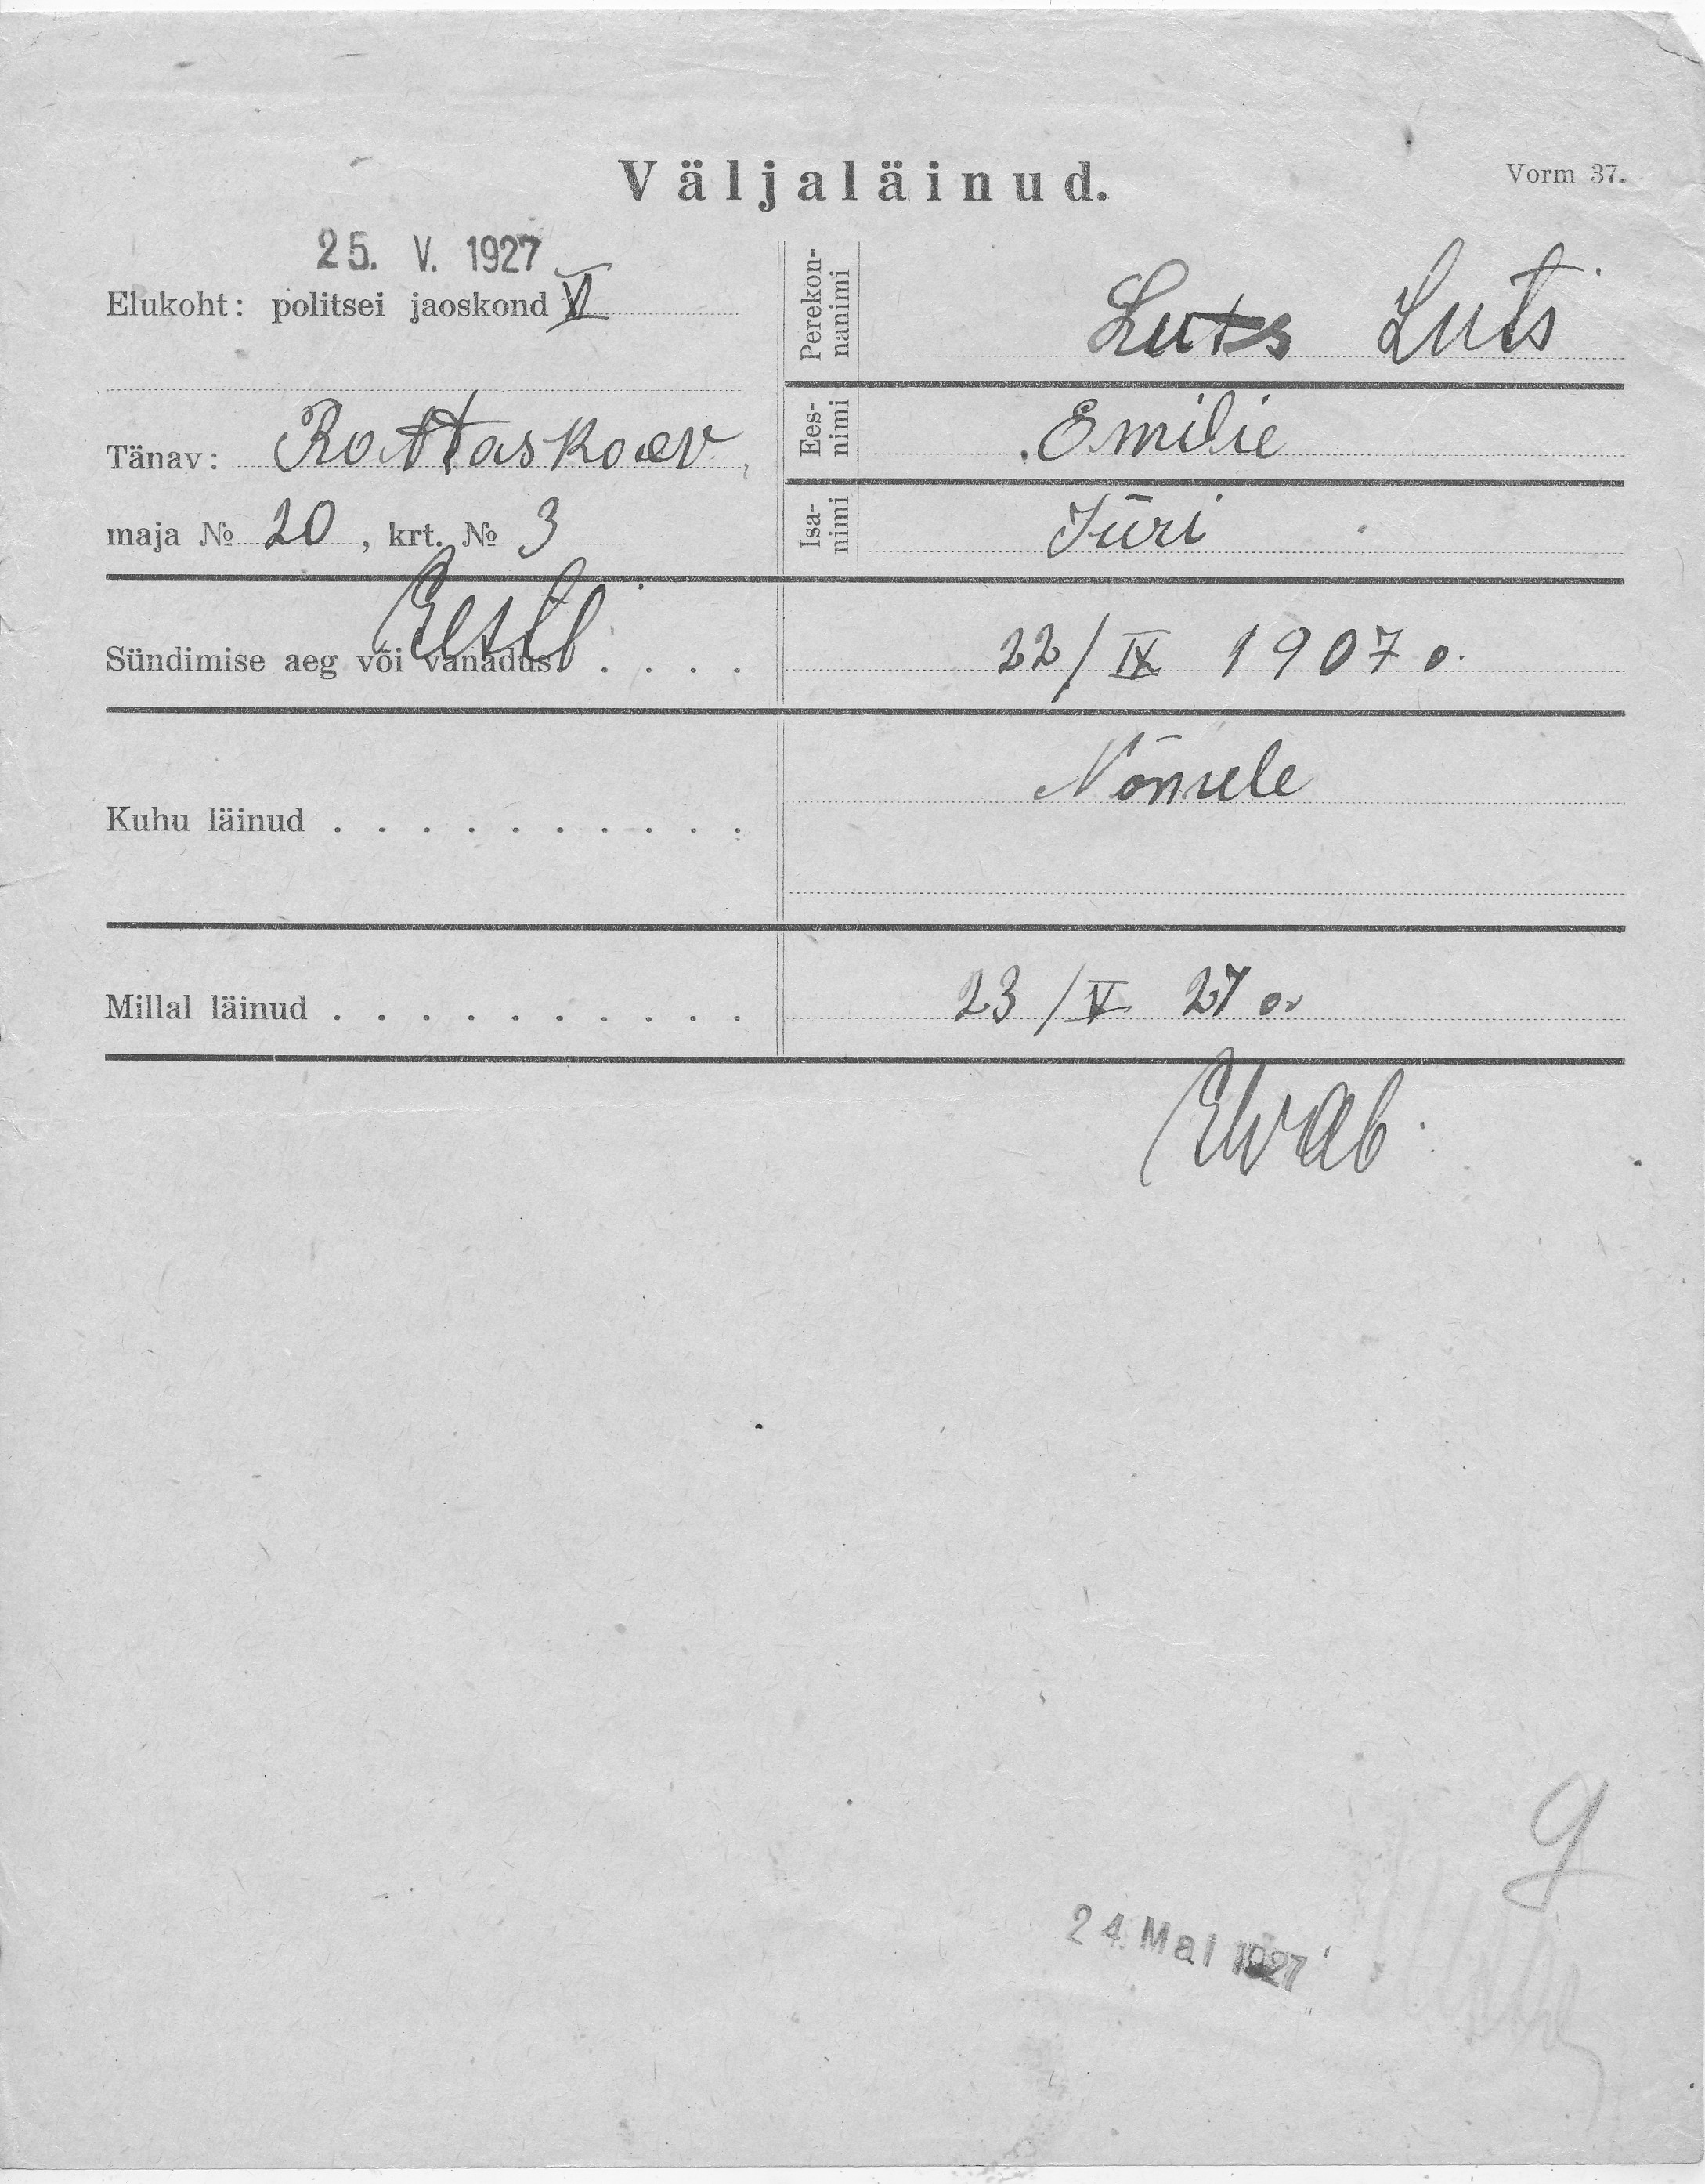 Väljaläinud.
Vorm 37.
25. V. 1927
Elukoht: politsei jaoskond VI
Tänav: Rattaskaev
maja № 20, krt. № 3
Perekon-
nanimi
Luts Luts
Ees-
nimi
Emilie
Isa-
nimi
Jüri
Eesti
Sündimise aeg või vanadus. . . . . 22/IX 1907 a.
Kuhu läinud . . . . . . . . . . Nõmmele
Millal läinud . . . . . . . . . . 23/V 27 a.
24. Mai 1927